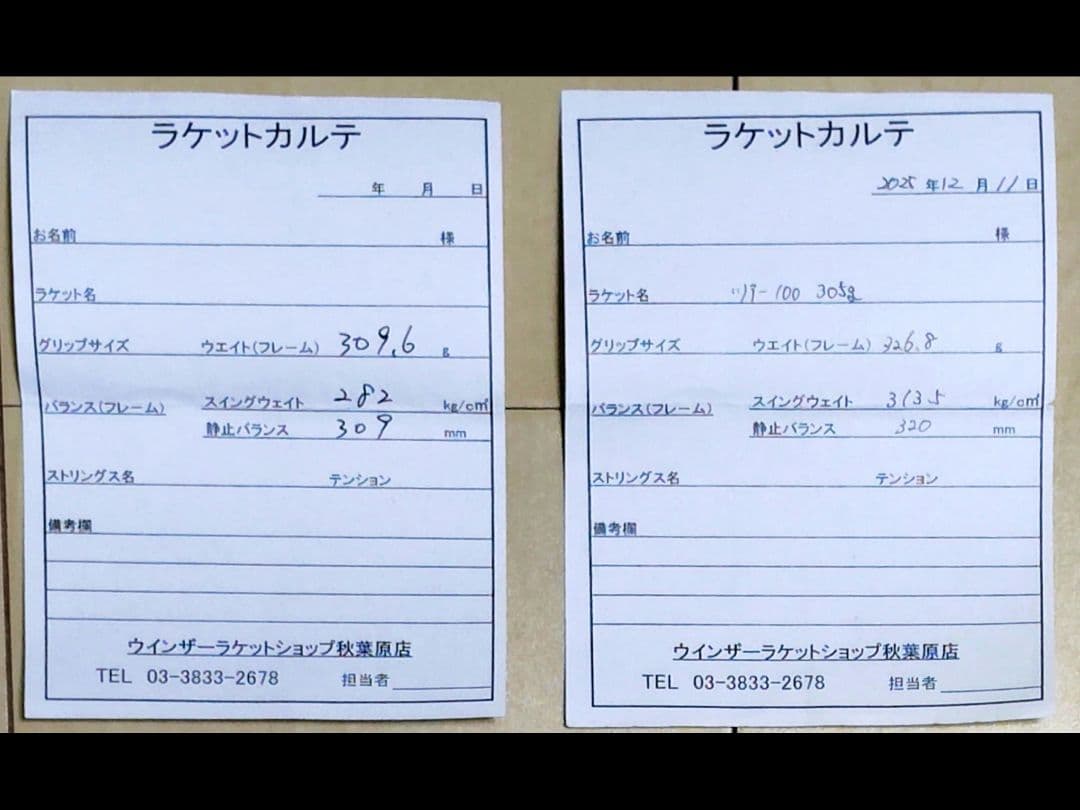 ラケットカルテ
年 月 日
お名前 様
ラケット名
グリップサイズ ウエイト(フレーム) 309.6 g
バランス(フレーム) スイングウェイト 282 kg/c㎡
静止バランス 309 mm
ストリングス名 テンション
備考欄
ウインザーラケットショップ秋葉原店
TEL 03-3833-2678 担当者
ラケットカルテ
2025 年 12 月 11 日
お名前 様
ラケット名 ツアー100 305g
グリップサイズ ウエイト(フレーム) 326.8 g
バランス(フレーム) スイングウェイト 313.5 kg/c㎡
静止バランス 320 mm
ストリングス名 テンション
備考欄
ウインザーラケットショップ秋葉原店
TEL 03-3833-2678 担当者